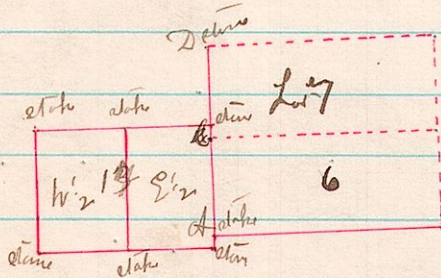 D stone
Lot 7
stake stake stone
6
W½ 13 E½
A stake
stone stake stone